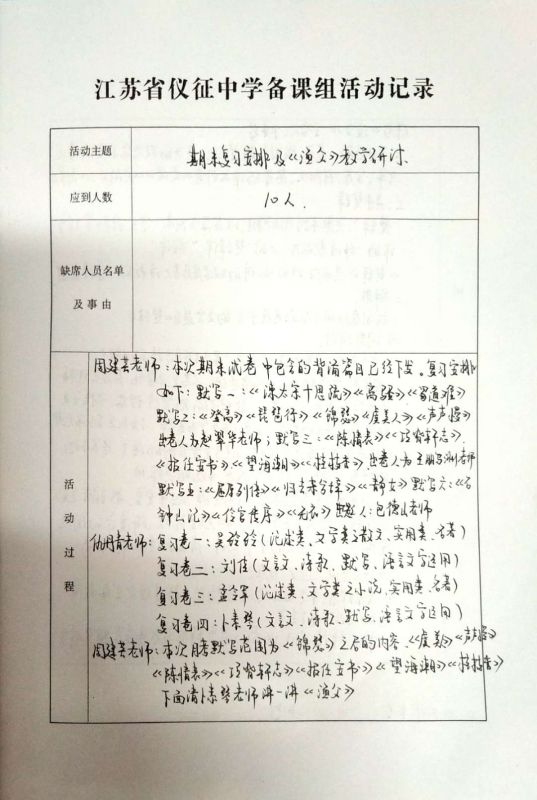 江苏省仪征中学备课组活动记录
活动主题 期末复习安排及《渔父》教学研讨.
应到人数 10人.
缺席人员名单
及事由
活动过程
周建芸老师:本次期末试卷中包含的背诵篇目已经下发。复习安排
如下:默写一:《谏太宗十思疏》《离骚》《蜀道难》
默写2:《登高》《琵琶行》《锦瑟》《虞美人》《声声慢》
出卷人为赵翠华老师;默写三:《陈情表》《项脊轩志》.
《报任安书》《望海潮》《扬州慢》.出卷人为 老师
默写五:《屈原列传》《归去来兮辞》《静女》默写六:《石
钟山记》《伶官传序》《无衣》出卷人:包德山老师
仇丹青老师:复习卷一:吴玲玲(论述类、文学类之散文、实用类、名著)
复习卷二:刘佳(文言文、诗歌、默写、语言文字运用)
复习卷三:(论述类、文学类之小说、实用类、名著)
复习卷四:卜素琴(文言文、诗歌、默写、语言文字运用)
周建芸老师:本次月考默写范围为《锦瑟》之后的内容.《虞美人》《声声慢》
《陈情表》《项脊轩志》《报任安书》《望海潮》《扬州慢》
下面请卜素琴老师讲一讲《渔父》